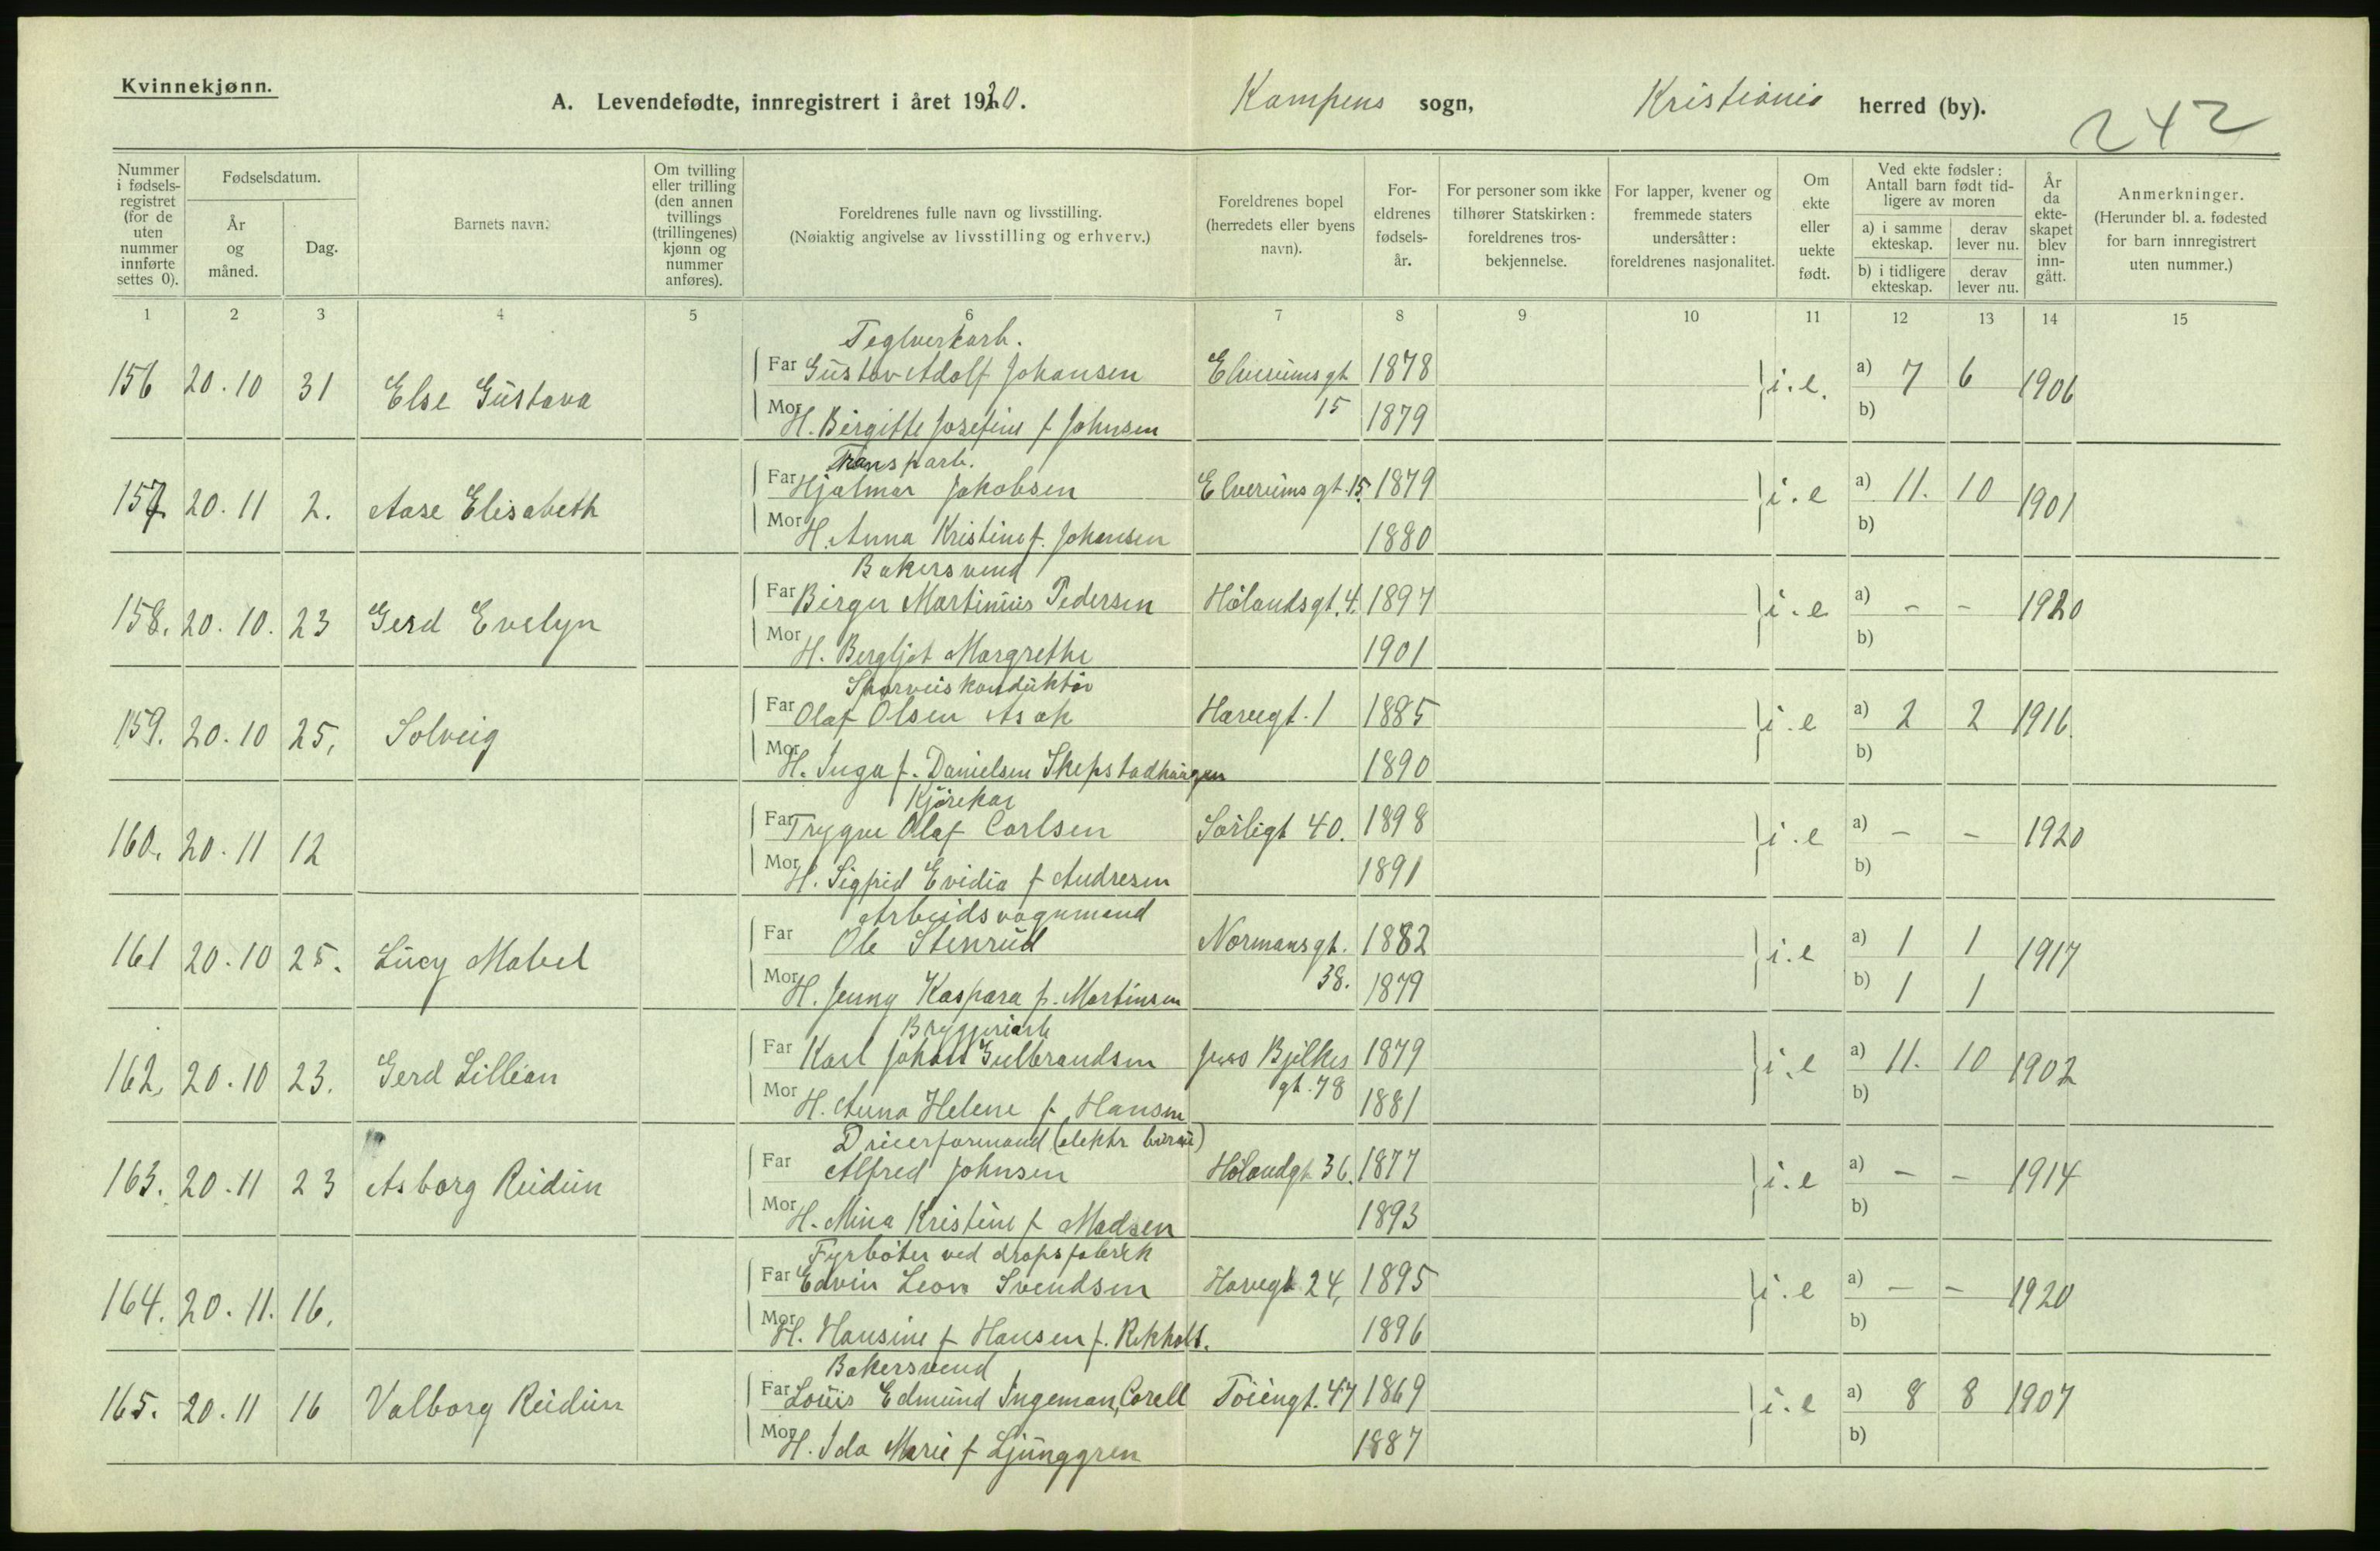 Kvinnekjønn.
A. Levendefødte, innregistrert i året 1920. Kampens sogn, Kristiania herred (by).
242
Nummer i fødselsregistret (for de uten nummer innførte settes 0).
Fødselsdatum.
År og måned.
Dag.
Barnets navn.
Om tvilling eller trilling (den annen tvillings (trillingenes) kjønn og nummer anføres).
Foreldrenes fulle navn og livsstilling.
(Nøiaktig angivelse av livsstilling og erhverv.)
Foreldrenes bopel (herredets eller byens navn).
Foreldrenes fødselsår.
For personer som ikke tilhører Statskirken: foreldrenes trosbekjennelse.
For lapper, kvener og fremmede staters undersåtter: foreldrenes nasjonalitet.
Om ekte eller uekte født.
Ved ekte fødsler: Antall barn født tidligere av moren
a) i samme ekteskap. derav lever nu.
b) i tidligere ekteskap. derav lever nu.
År da ekteskapet blev inngått.
Anmerkninger.
(Herunder bl. a. fødested for barn innregistrert uten nummer.)
1 2 3 4 5 6 7 8 9 10 11 12 13 14 15
Teglverkarb.
156 20.10 31 Else Gustava Far Gustav Adolf Johansen Elverumsgt 1878 i.e. a) 7 6 1906
Mor H. Birgitte Josefine f Johnsen 15 1879 b)
Transparb.
157. 20.11 2. Aase Elisabeth Far Hjalmar Jakobsen Elverumsgt.15. 1879 i.e a) 11. 10 1901
Mor H. Anna Kristine f. Johansen 1880 b)
Bakersvend
158. 20.10. 23 Gerd Evelyn Far Birger Martinius Pedersen Hølandsgt.4. 1897 i.e a) - - 1920
Mor H. Bergljot Margrethe 1901 b)
Sporveiskonduktør
159. 20.10 25, Solveig Far Olaf Olsen Asak Havegt.1 1885 i.e a) 2 2 1916.
Mor H. Inga f. Danielsen Skepstadhaugen 1890 b)
Kjørekar
160. 20.11 12 Far Trygve Olaf Carlsen Sørligt 40. 1898 i.e a) - - 1920
Mor H. Sigfrid Evidia f Andresen 1891 b)
Arbeidsvognmand
161 20.10 25. Lucy Mabel Far Ole Stenrud Normansgt. 1882 i.e a) 1 1 1917
Mor H. Jenny Kaspara f. Martinsen 38. 1879 b) 1 1
Bryggeriarb
162, 20.10 23. Gerd Lillian Far Karl Johan Gulbrandsen Jens Bjelkes 1879 i.e a) 11. 10 1902
Mor H. Anna Helene f Hansen gt.78 1881 b)
Driverformand (elektr
163. 20.11 23 Asborg Reidun Far Alfred Johnsen Hølandgt 36. 1877 i.e a) - - 1914
Mor H. Mina Kristine f Madsen 1893 b)
Fyrbøter ved dropsfabrik
164. 20.11. 16. Far Edvin Leon Svendsen Havegt 24, 1895 i.e a) - - 1920
Mor H. Hansine f Hansen f. Rekholt. 1896 b)
Bakersvend
165. 20.11 16 Valborg Reidun Far Louis Edmund Ingeman, Corell Tøiengt.47 1869 i.e a) 8 8 1907
Mor H. Ida Marie f Ljunggren 1887 b)